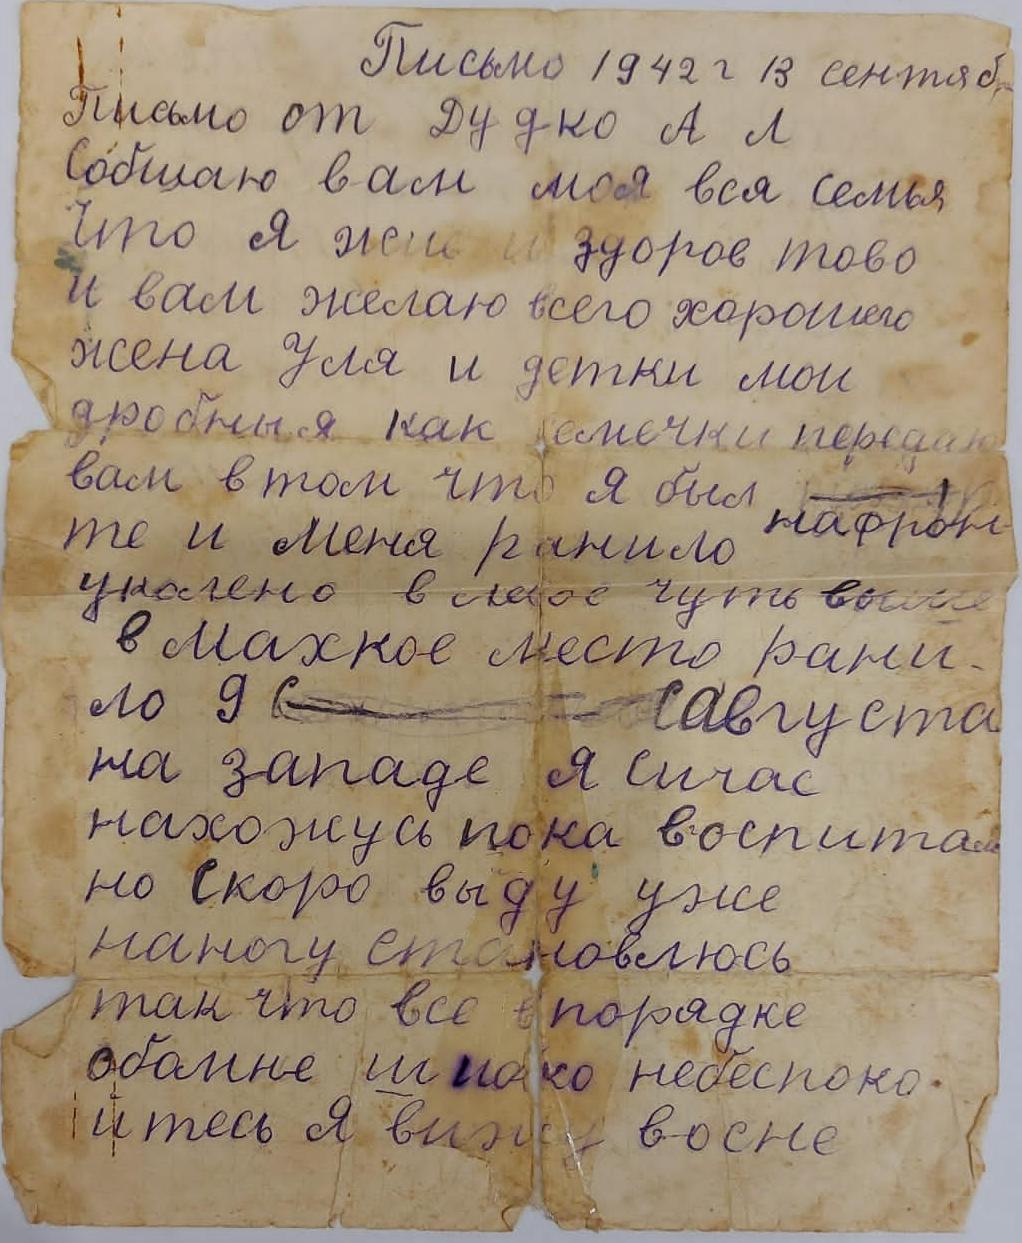 Письмо 1942 г 13 сентяб
Письмо от Дудко А Л
Собшаю вам моя вся семья
Что я жив и здоров тово
и вам желаю всего хорошего
жена Уля и детки мои
дробныя как семечки передаю
вам в том что я был
нафрон-
те и меня ранило
уколено в левое чуть выше
в махкое место рани-
ло 9 августа
на западе я сичас
нахожусь пока воспитам
но скоро выду уже
наногу становлюсь
так что все впорядке
обомне шипко небеспоко
итесь Я вижу восне